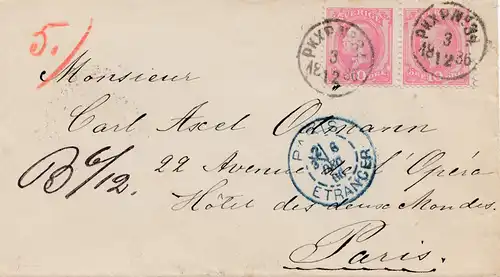 5./.
SVERIGE
PKXP.Nº
3
18 12 86
PKXP.Nº
3
18 12 86
10 ÖRE
10 ÖRE
Monsieur
Carl Axel
PARIS
6
ETRANGER
B 6/12.
22 Avenue de l'Opéra
Hôtel des deux Mondes.
Paris.